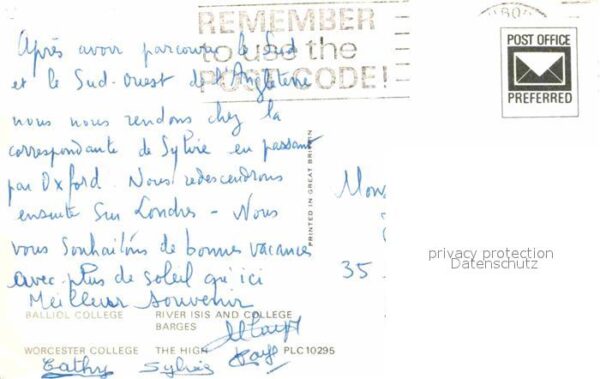 REMEMBER
to use the
POST CODE!
POST OFFICE
PREFERRED
Après avoir parcouru le Sud
et le Sud-Ouest de l'Angleterre
nous nous rendons chez la
correspondante de Sylvie en passant
par Oxford. Nous redescendrons
ensuite sur Londres - Nous
vous souhaitons de bonnes vacances
avec plus de soleil qu'ici
Meilleur souvenir
Cathy Sylvie
35
PRINTED IN GREAT BRITAIN
privacy protection
Datenschutz
BALLIOL COLLEGE RIVER ISIS AND COLLEGE
BARGES
WORCESTER COLLEGE THE HIGH PLC10295